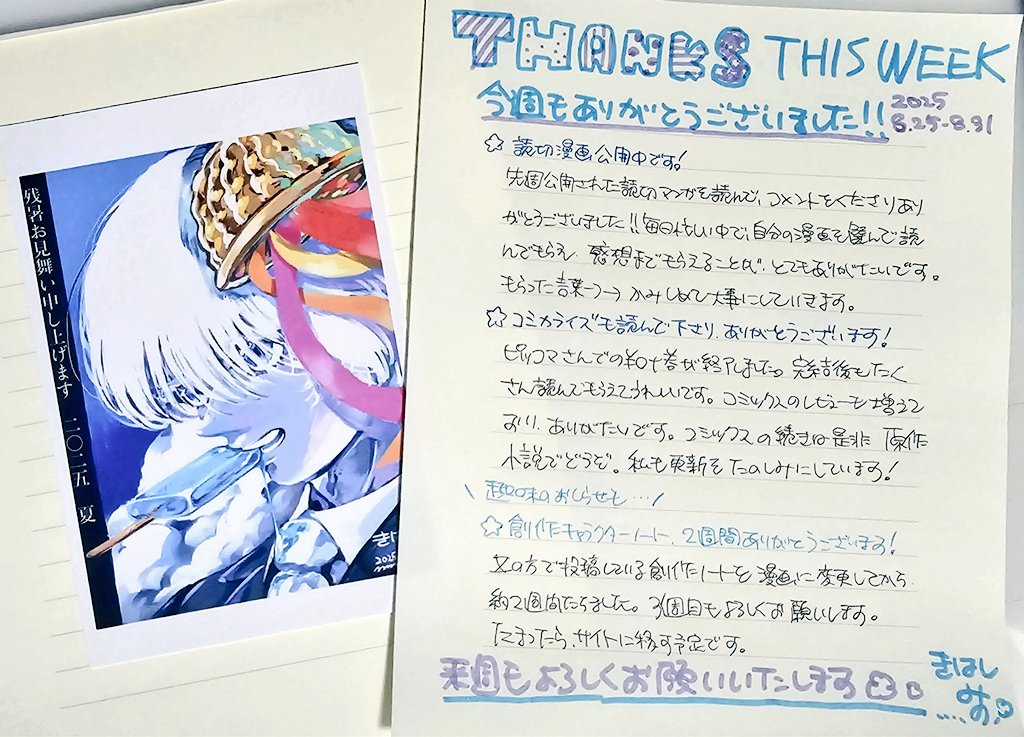 残暑お見舞い申し上げます 二〇二五 夏
2025
THANKS THIS WEEK
今週もありがとうございました!!
2025
8.25-8.31
☆ 読切漫画公開中です!
先週公開された読切マンガを読んで、コメントをくださりあり
がとうございました!!毎日忙しい中で、自分の漫画を選んで読
んでもらえ、感想までもらえることが、とてもありがたいです。
もらった言葉一つ一つかみしめて大事にしていきます。
☆ コミカライズも読んで下さり、ありがとうございます!
ピッコマさんでの約十巻が終了しました。完結後もたく
さん読んでもらえてうれしいです。コミックスのレビューも増えて
おり、ありがたいです。コミックスの続きは是非 原作
小説でどうぞ。私も更新をたのしみにしています!
\ 趣味のおしらせも…/
☆ 創作キャラクターノート、2週間ありがとうございます!
文の方で投稿している創作ノートを漫画に変更してから、
約2週間たちました。3週目もよろしくお願いします。
たまったら、サイトに移す予定です。
来週もよろしくお願いいたします
きはし